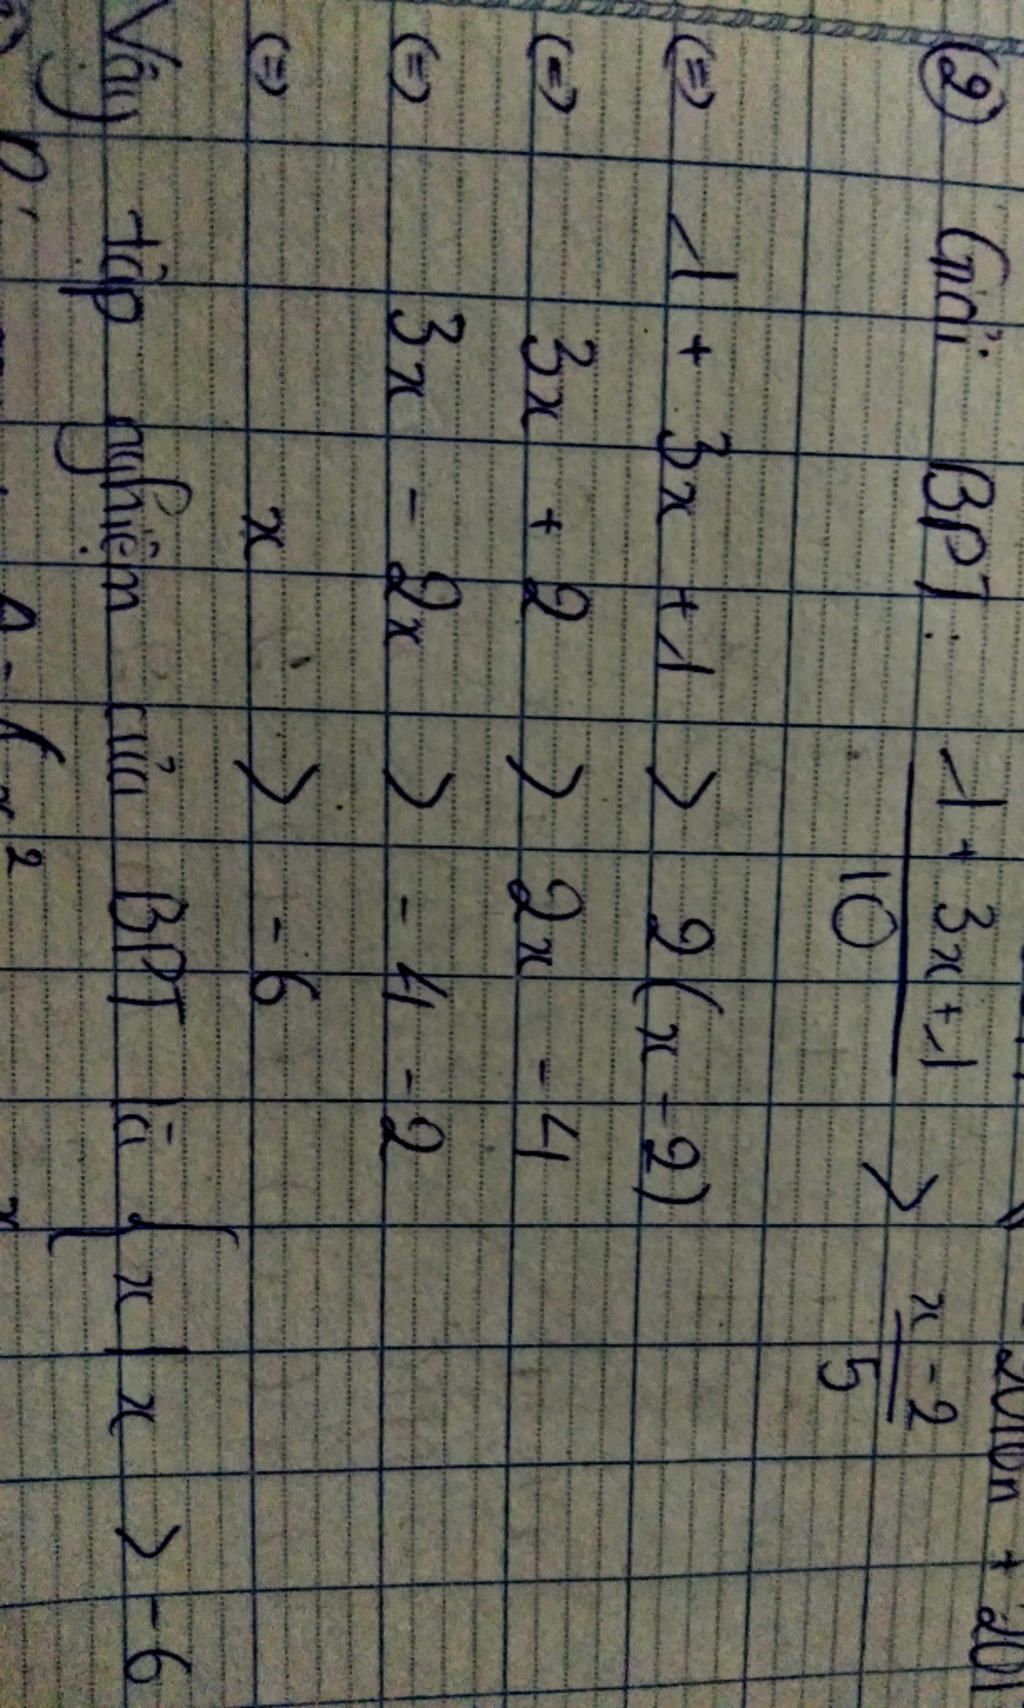 ② Giải BPT : (1 + 3x + 1)/10 > (x - 2)/5
(=) 1 + 3x + 1 > 2(x - 2)
(=) 3x + 2 > 2x - 4
(=) 3x - 2x > - 4 - 2
(=) x > - 6
Vậy tập nghiệm của BPT là { x | x > -6